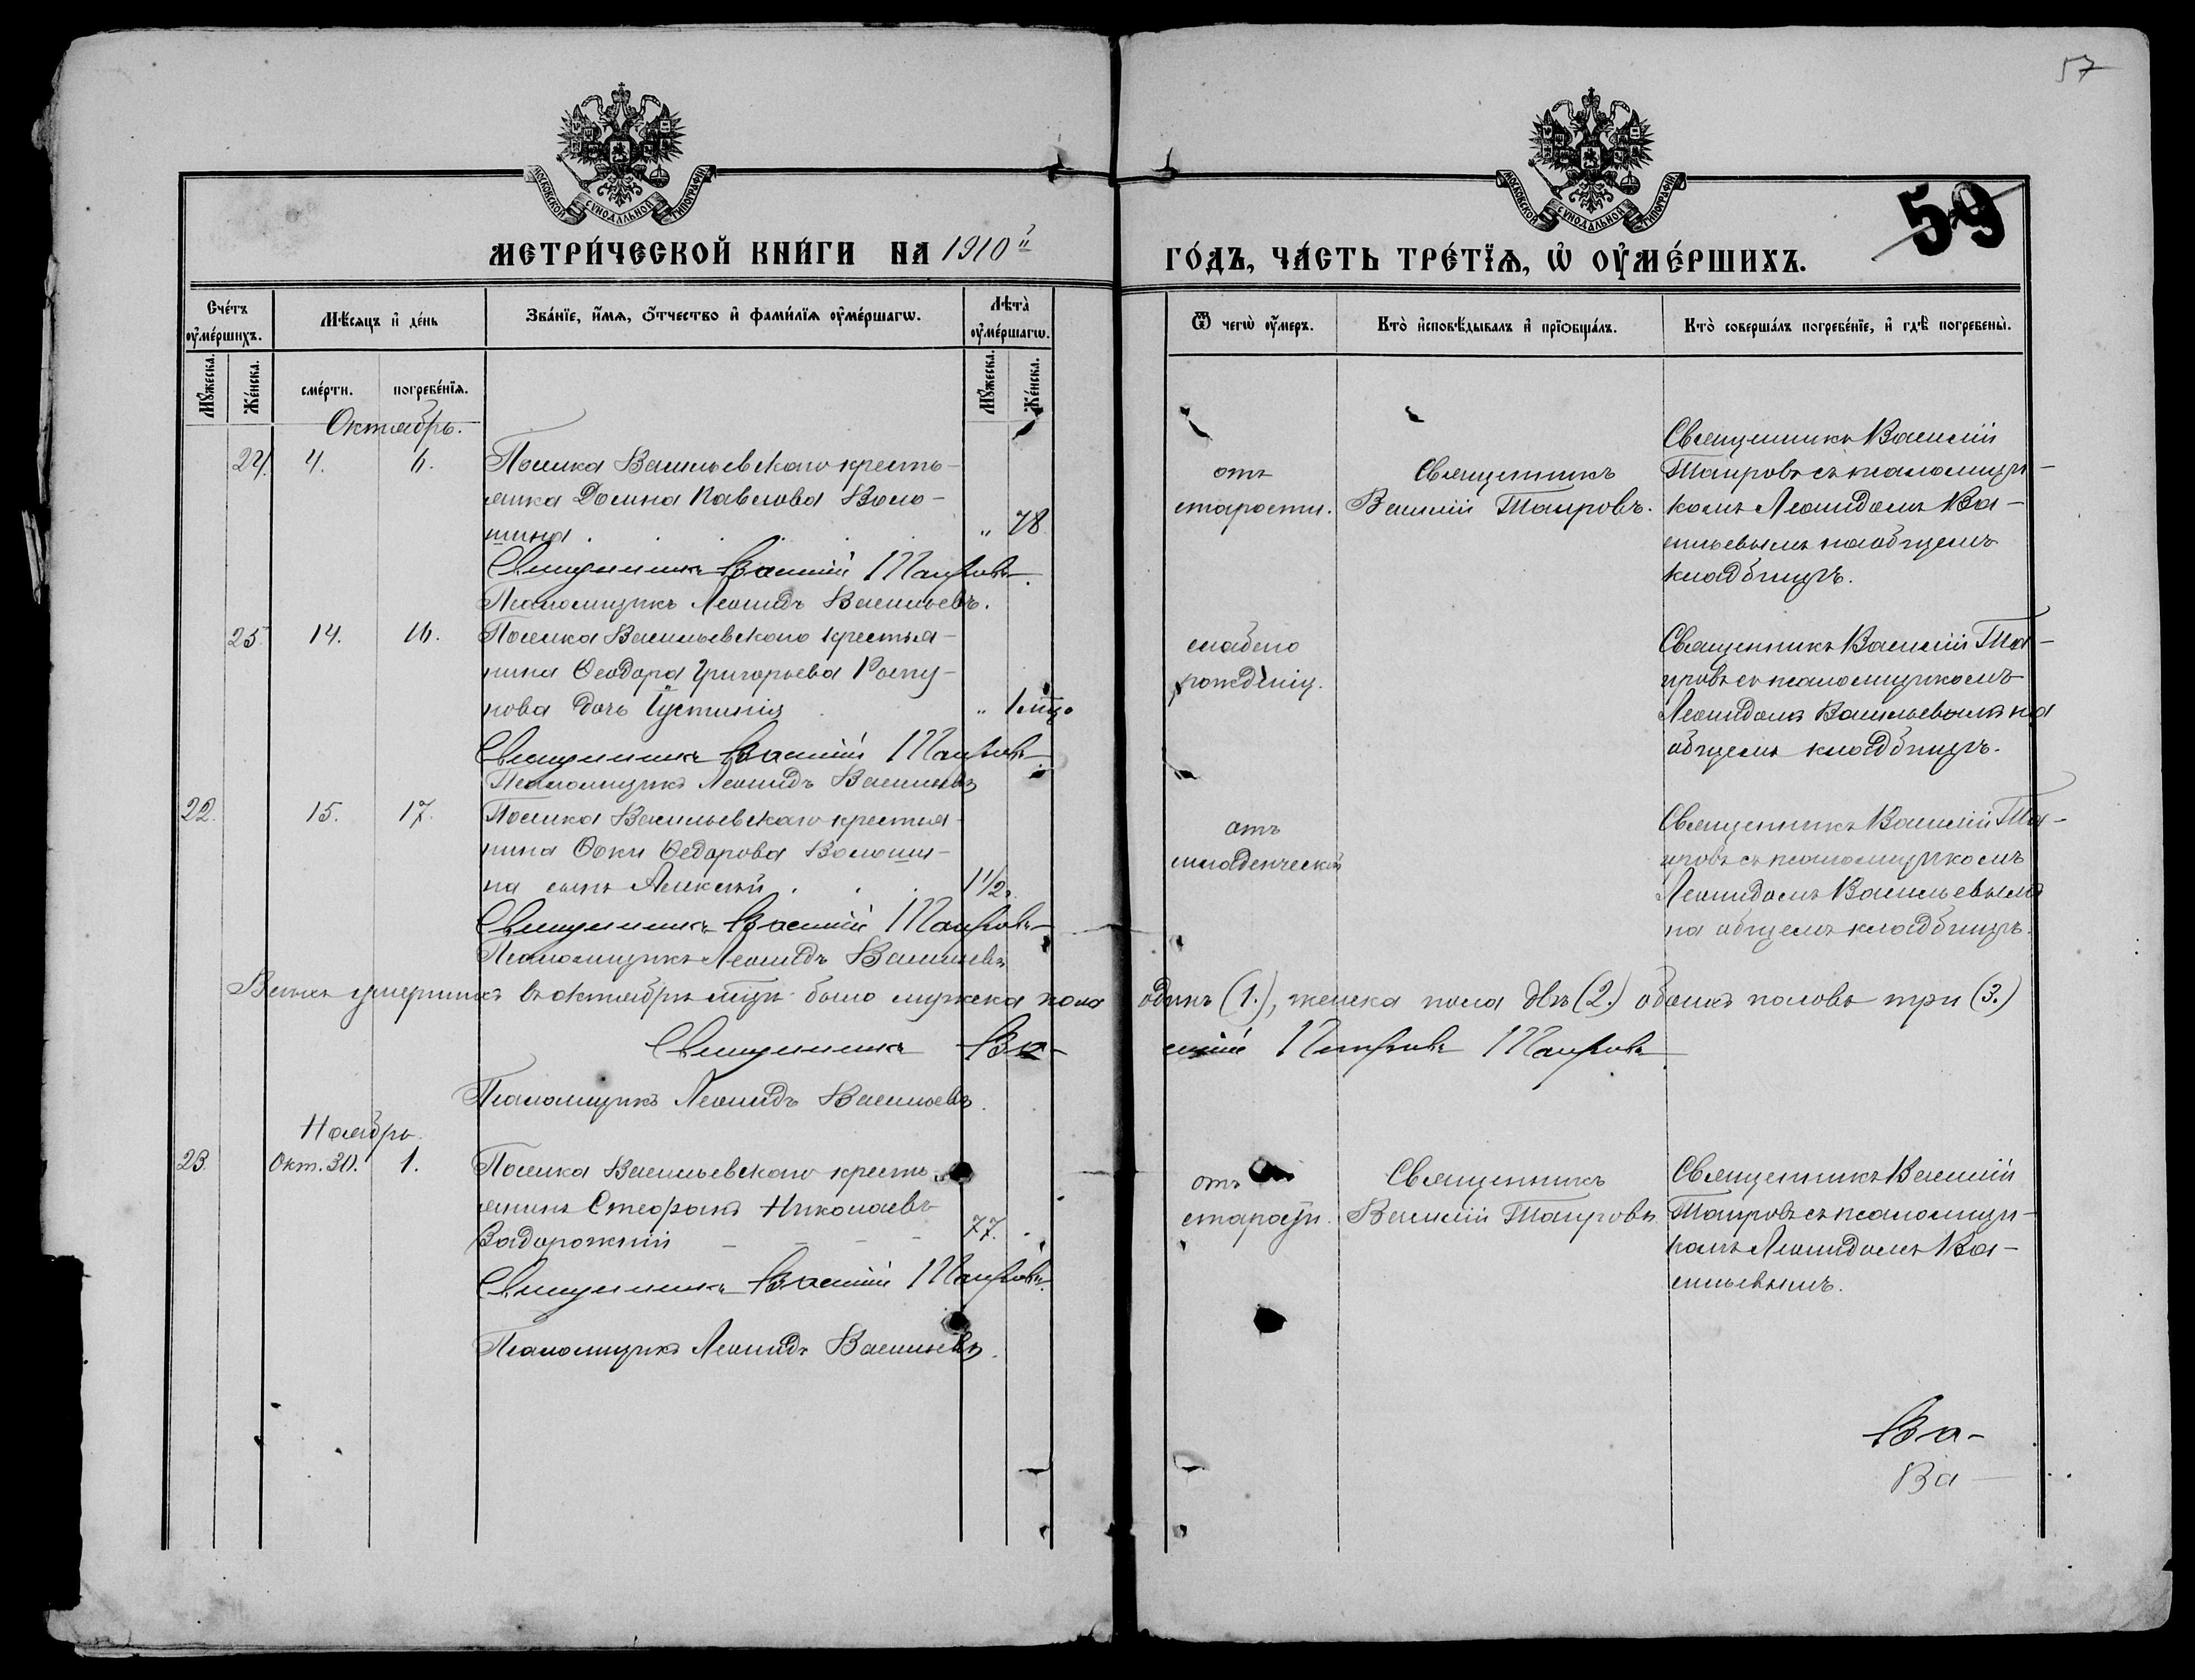 57
МОСКОВСКОЙ СѴНОДАЛЬНОЙ ТИПОГРАФІИ
МОСКОВСКОЙ СѴНОДАЛЬНОЙ ТИПОГРАФІИ
59
МЕТРИ́ЧЕСКОЙ КНИ́ГИ НА 1910й
ГО́ДЪ, ЧА́СТЬ ТРЕ́ТЇѦ, Ѡ҆ ОУ҆МЕ́РШИХЪ.
Сче́тъ оу҆ме́ршихъ.
Мѣ́сяцъ и҆ де́нь
Зва́нїе, и҆́мѧ, ѻ҆́тчество и҆ фами́лїѧ оу҆ме́ршагѡ.
Лѣ́та̀ оу҆ме́ршагѡ.
Ѿ чегѡ̀ оу҆́меръ.
Кто̀ и҆сповѣ́дывалъ и҆ прїѻбща́лъ.
Кто̀ соверша́лъ погребе́нїе, и҆ гдѣ̀ погребены̀.
Мꙋ́жеска.
Же́нска.
сме́рти.
погребе́нїѧ.
Мꙋ́жеска.
Же́нска.
Октябрь.
24. 4. 6. Поселка Васильевскаго кресть-
янка Домна Павлова Воло-
шина . . . . „ 78
Священникъ Василій Таировъ.
Псаломщикъ Леонидъ Васильевъ.
отъ
старости.
Священникъ
Василій Таировъ.
Священникъ Василій
Таировъ съ псаломщи-
комъ Леонидомъ Ва-
сильевымъ на общемъ
кладбищѣ.
25. 14. 16. Поселка Васильевскаго крестья-
нина Ѳеодора Григорьева
дочь Іустинія „ 1 мц.
Священникъ Василій Таировъ
Псаломщикъ Леонидъ Васильевъ
слабаго
рожденія.
Священникъ Василій Та-
ировъ съ псаломщикомъ
Леонидомъ Васильевымъ на
общемъ кладбищѣ.
22. 15. 17. Поселка Васильевскаго крестья-
нина Ѳоки Ѳедорова Волоши-
на сынъ Алексѣй . . . 1 1/2
Священникъ Василій Таировъ
Псаломщикъ Леонидъ Васильевъ
отъ
младенческой
Священникъ Василій Та-
ировъ съ псаломщикомъ
Леонидомъ Васильевымъ
на общемъ кладбищѣ.
Всѣхъ умершихъ въ октябрѣ мцѣ было мужска пола одинъ (1.), женска пола двѣ (2.) обоихъ половъ три (3.)
Священникъ Ва-силій Таировъ
Псаломщикъ Леонидъ Васильевъ.
Ноябрь.
23. Окт. 30. 1. Поселка Васильевскаго кресть-
янинъ Стефанъ Николаевъ
Задорожній - - - - 77.
Священникъ Василій Таировъ.
Псаломщикъ Леонидъ Васильевъ.
отъ
старости.
Священникъ
Василій Таировъ
Священникъ Василій
Таировъ съ псаломщи-
комъ Леонидомъ Ва-
сильевымъ.
Ва-
Ва-